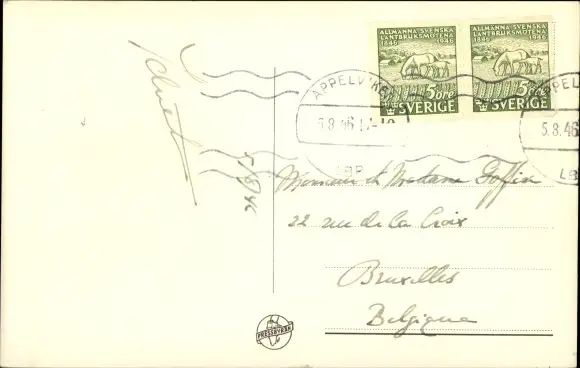 ALLMÄNNA SVENSKA
LANTBRUKSMÖTENA
1846 1946
5 ÖRE
SVERIGE
ALLMÄNNA SVENSKA
LANTBRUKSMÖTENA
1846 1946
5 ÖRE
SVERIGE
APPELVIKEN
5.8.46
LBR
APPEL
5.8.46
LB
5/8/46
Monsieur et Madame Goffin
22 rue de la Croix
Bruxelles
Belgique
PRESSBYRÅN